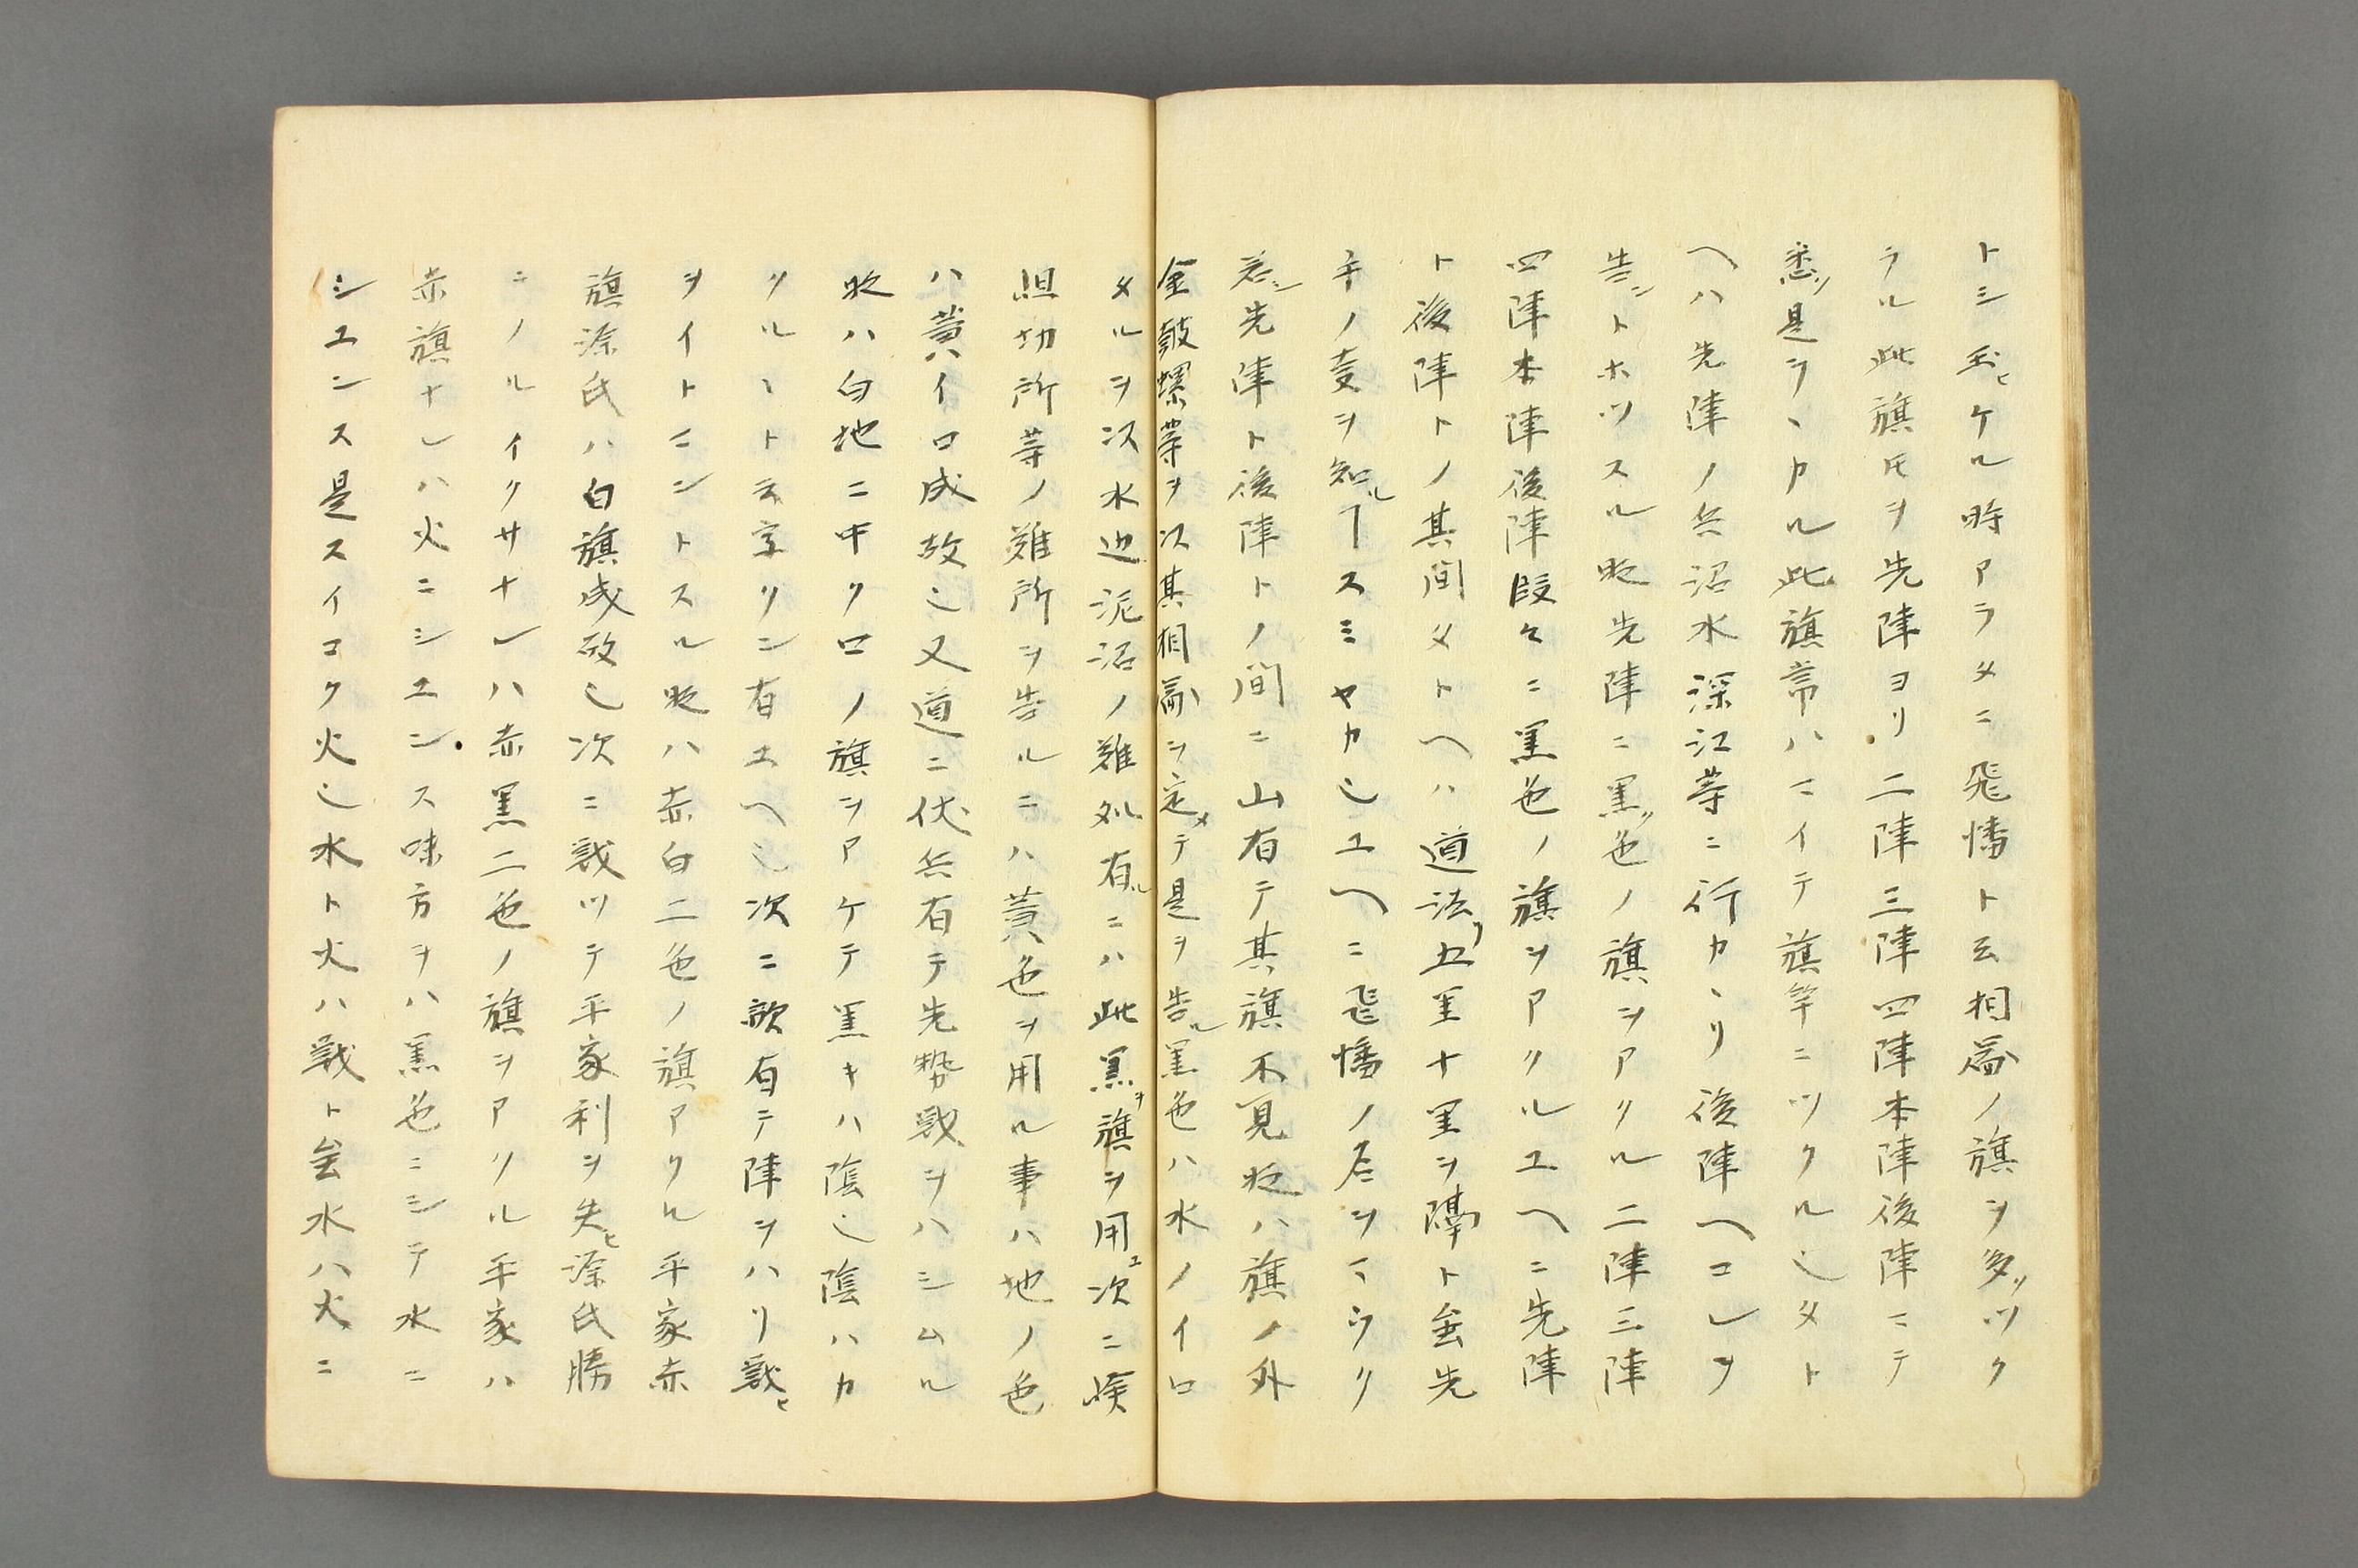 トシ玉ヒケル時アラタニ飛幡ト云相圖ノ旗ヲ多ツク
ラル此旗氏ヲ先陣ヨリ二陣三陣四陣本陣後陣ニテ
悉ク是ヲヽカル此旗常ハニイテ旗竿ニツクル也タト
ヘハ先陣ノ兵沼水深江等ニ行カヽリ後陣ヘコレヲ
告ントホツスル時先陣ニ黒色ノ旗ヲアクル二陣三陣
四陣本陣後陣段々ニ黒色ノ旗ヲアクルユヘニ先陣
ト後陣トノ其間タトヘハ道法五里十里ヲ隔ト雖先
手ノ変ヲ知ルヿスミヤカ也ユヘニ飛幡ノ名ヲマウク
若シ先陣ト後陣トノ間ニ山有テ其旗不見時ハ旗ノ外
金鼓螺等ヲ以其相圖ヲ定メテ是ヲ告ル黒色ハ水ノイロ
タルヲ以水辺泥沼ノ難処有ルニハ此黒旗ヲ用ユ次ニ嶮
阻切所等ノ難所ヲ告ルニハ黄色ヲ用ル事ハ地ノ色
ハ黄イロ成故也又道ニ伏兵有テ先勢戦ヲハシムル
時ハ白地ニ中クロノ旗ヲアケテ黒キハ陰也陰ハカ
クルヽト云字リン有ユヘ也次ニ敵有テ陣ヲハリ戦ヒ
ヲイトミントスル時ハ赤白二色ノ旗アクル平家赤
旗源氏ハ白旗成故也次ニ戦ツテ平家利ヲ失ヒ源氏勝
ニノルイクサナレハ赤黒二色ノ旗ヲアクル平家ハ
赤旗ナレハ火ニシユンス味方ヲハ黒色ニシテ水ニ
シユンス是スイコク火也水ト火ハ戦ト雖水ハ火ニ